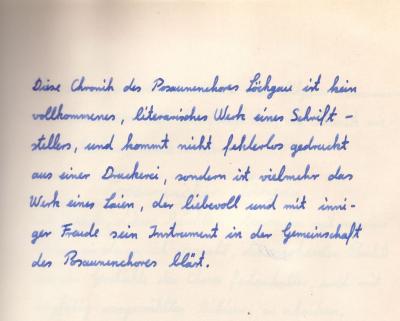 Diese Chronik des Posaunenchores Löchgau ist kein
vollkommenes, literarisches Werk eines Schrift-
stellers, und kommt nicht fehlerlos gedruckt
aus einer Druckerei, sondern ist vielmehr das
Werk eines Laien, der liebevoll und mit inni-
ger Freude sein Instrument in der Gemeinschaft
des Posaunenchores bläst.